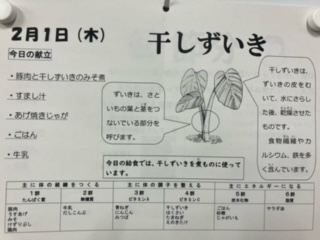 2月1日（木）
干しずいき
今日の献立
・豚肉と干しずいきのみそ煮
・すまし汁
・あげ焼きじゃが
・ごはん
・牛乳
ずいきは、さと
いもの葉と茎をつ
ないでいる部分を
呼びます。
干しずいきは、
ずいきの皮をむ
いて、水にさらし
た後、乾燥させた
ものです。
食物繊維やカ
ルシウム、鉄を多
く含んでいます。
今日の給食では、干しずいきを煮ものに使って
います。
主に体の組織をつくる
主に体の調子を整える
主にエネルギーになる
1群
2群
3群
4群
5群
6群
たんぱく質
無機質
ビタミンA
ビタミンC
炭水化物
脂質
豚肉
うすあげ
みそ
けずりぶし
鶏肉
牛乳
だしこんぶ
青ねぎ
にんじん
みつば
干しずいき
はくさい
たまねぎ
えのきたけ
ごはん
砂糖
じゃがいも
サラダ油